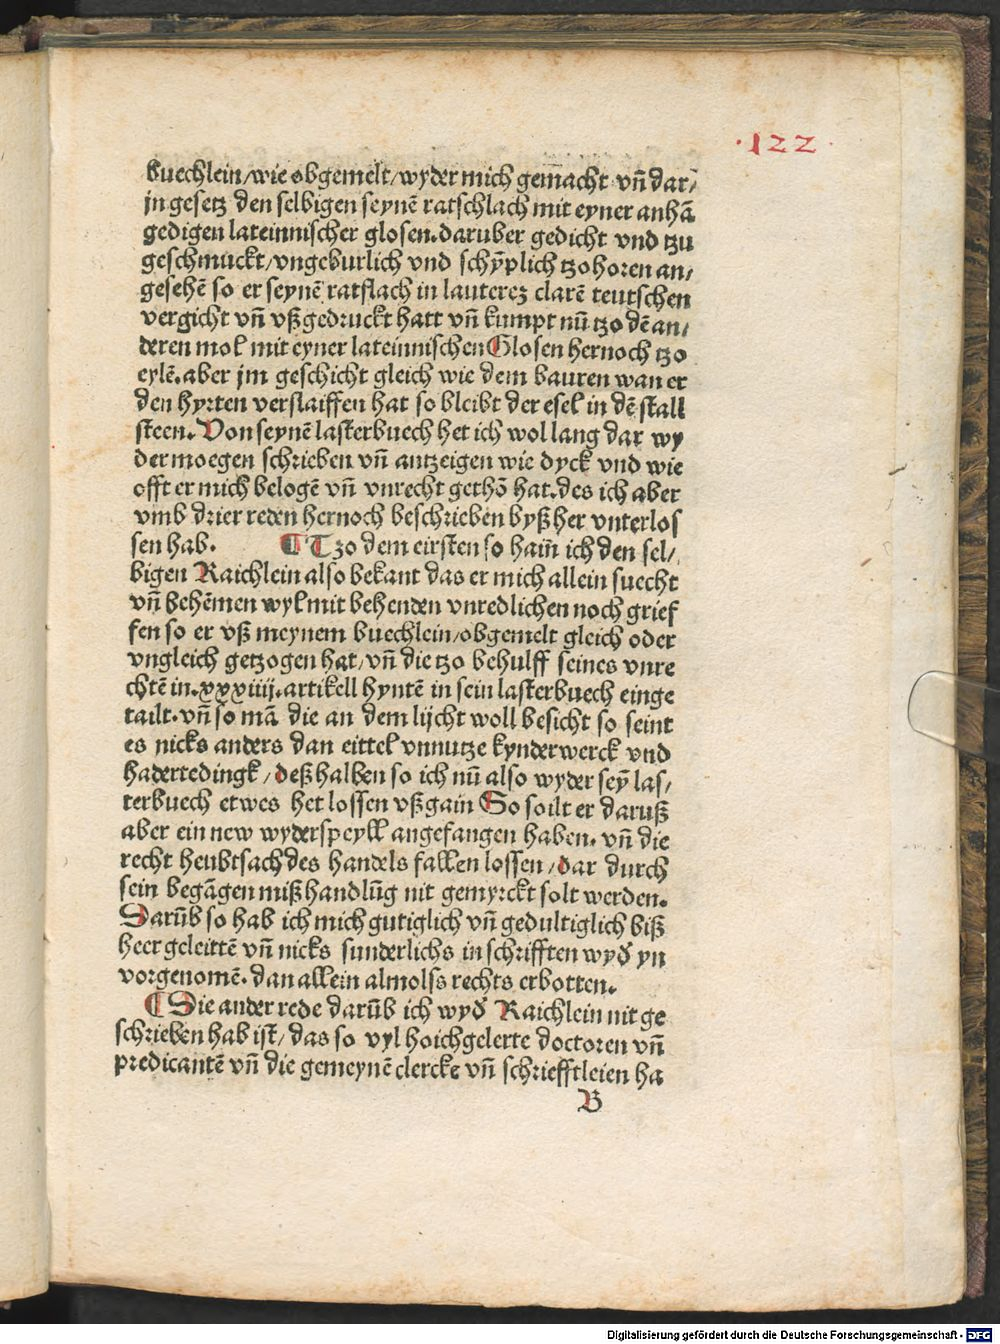 ·122·
buechlein/wie obgemelt/wyder mich gemacht vñ dar/
jn gesetz den selbigen seynē ratschlach mit eyner anhā
gedigen lateinnischer glosen.daruber gedicht vnd tzu
geschmuckt/vngeburlich vnd schỹplich tzohoren an/
gesehē so er seynē ratslach in lauterez clarē teutschen
vergicht vñ vßgedruckt hatt vñ kumpt nū tzo dē an/
deren mol mit eyner lateinnischen Glosen hernoch tzo
eylē.aber jm geschicht gleich wie dem bauren wan er
den hyrten verslaiffen hat so bleibt der esel in dē stall
steen. Von seynē lasterbuech het ich wol lang dar wy
der moegen schrieben vñ antzeigen wie dyck vnd wie
offt er mich belogē vñ vnrecht gethō hat.des ich aber
vmb drier reden hernoch beschrieben byßher vnterlos
sen hab. ¶ Tzo dem eirsten so hain̄ ich den sel/
bigen Raichlein also bekant das er mich allein suecht
vñ behēmen wyl mit behenden vnredlichen noch grief
fen so er vß meynem buechlein/obgemelt gleich oder
vngleich getzogen hat/vñ die tzo behulff seines vnre
chtē in.xxxiiij.artikell hyntē in sein lasterbuech einge
tailt.vñ so mā die an dem lijcht woll besicht so seint
es nicks anders dan eittel vnnutze kynderwerck vnd
hadertedingk/deßhalben so ich nū also wyder seȳ las/
terbuech etwes het lossen vßgain So soilt er daruß
aber ein new wyderspeyll angefangen haben. vñ die
recht heubtsach des handels fallen lossen/dar durch
sein begāgen mißhandlūg nit gemyrckt solt werden.
Darūb so hab ich mich gutiglich vñ gedultiglich biß
heer geleittē vñ nicks sunderlichs in schrifften wyď yn
vorgenomē.dan allein almolss rechts erbotten.
¶ Die ander rede darūb ich wyď Raichlein nit ge
schrieben hab ist/das so vyl hoichgelerte doctoren vñ
predicantē vñ die gemeynē clercke vñ schriefftleien ha
B
Digitalisierung gefördert durch die Deutsche Forschungsgemeinschaft - DFG